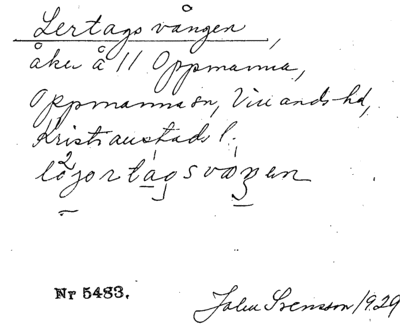 Lertagsvången,
åker å 11 Oppmanna,
Oppmanna sn, Villands hd,
Kristianstads l.
Nr 5483. John Svensson 1929